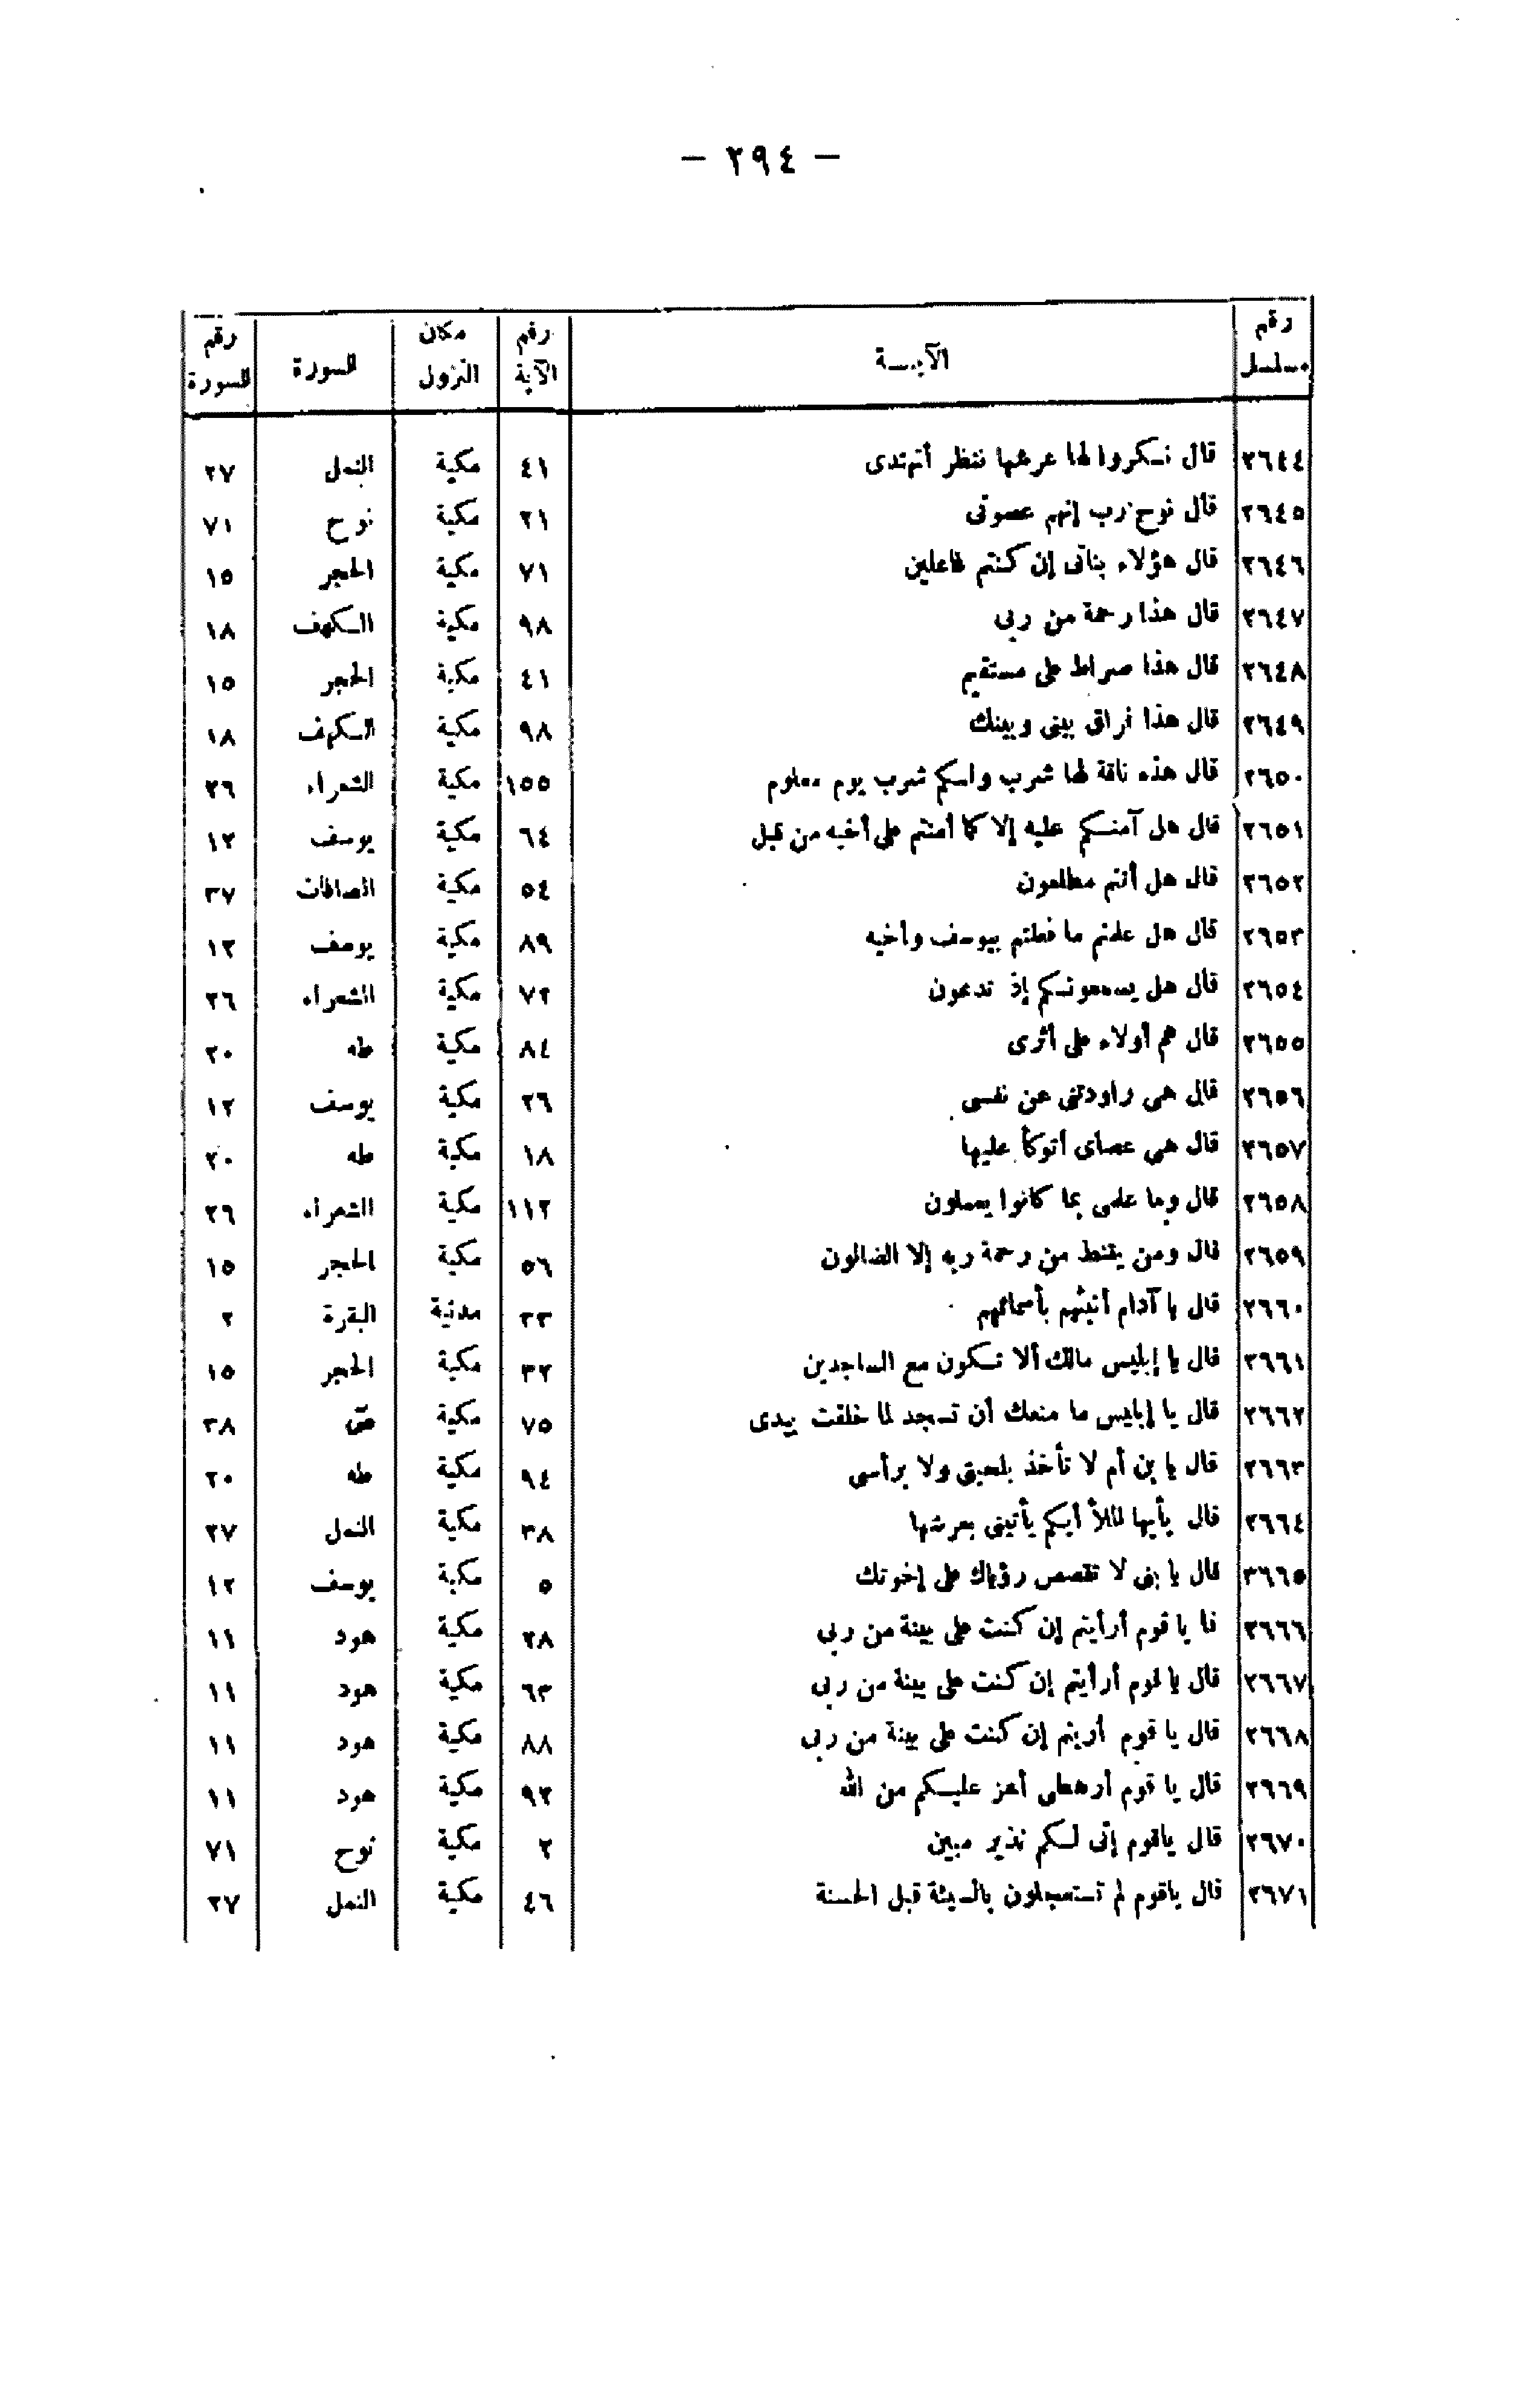 — ٢٩٤ —
رقم مسلسل الآيـــة رقم الآية مكان النزول السورة رقم السورة
٢٦٤٤ قال نـكروا لها عرشها ننظر أتهتدى ٤١ مكية النمل ٢٧
٢٦٤٥ قال نوح رب إنهم عصونى ٢١ مكية نوح ٧١
٢٦٤٦ قال هؤلاء بناتى إن كنتم فاعلين ٧١ مكية الحجر ١٥
٢٦٤٧ قال هذا رحمة من ربى ٩٨ مكية الـكهف ١٨
٢٦٤٨ قال هذا صراط على مستقيم ٤١ مكية الحجر ١٥
٢٦٤٩ قال هذا فراق بينى وبينك ٩٨ مكية الـكهف ١٨
٢٦٥٠ قال هذه ناقة لها شرب ولـكم شرب يوم معلوم ١٥٥ مكية الشعراء ٢٦
٢٦٥١ قال هل آمنـكم عليه إلا كما أمنتم على أخيه من قبل ٦٤ مكية يوسف ١٢
٢٦٥٢ قال هل أنتم مطلعون ٥٤ مكية الصافات ٣٧
٢٦٥٣ قال هل علمتم ما فعلتم بيوسف وأخيه ٨٩ مكية يوسف ١٢
٢٦٥٤ قال هل يسمعونـكم إذ تدعون ٧٢ مكية الشعراء ٢٦
٢٦٥٥ قال هم أولاء على أثرى ٨٤ مكية طه ٢٠
٢٦٥٦ قال هى راودتنى عن نفسى ٢٦ مكية يوسف ١٢
٢٦٥٧ قال هى عصاى أتوكأ عليها ١٨ مكية طه ٢٠
٢٦٥٨ قال وما علمى بما كانوا يعملون ١١٢ مكية الشعراء ٢٦
٢٦٥٩ قال ومن يقنط من رحمة ربه إلا الضالون ٥٦ مكية الحجر ١٥
٢٦٦٠ قال يا آدام أنبئهم بأسمائهم ٣٣ مدنية البقرة ٢
٢٦٦١ قال يا إبليس مالك ألا تـكون مع الساجدين ٣٢ مكية الحجر ١٥
٢٦٦٢ قال يا إبليس ما منعك أن تسجد لما خلقت بيدى ٧٥ مكية ص ٣٨
٢٦٦٣ قال يا بن أم لا تأخذ بلحيتى ولا برأسى ٩٤ مكية طه ٢٠
٢٦٦٤ قال يأيها الملأ أيكم يأتينى بعرشها ٣٨ مكية النمل ٢٧
٢٦٦٥ قال يا بنى لا تقصص رؤياك على إخوتك ٥ مكية يوسف ١٢
٢٦٦٦ قا يا قوم أرأيتم إن كنت على بينة من ربى ٢٨ مكية هود ١١
٢٦٦٧ قال يا قوم أرأيتم إن كنت على بينة من ربى ٦٣ مكية هود ١١
٢٦٦٨ قال يا قوم أريتم إن كنت على بينة من ربى ٨٨ مكية هود ١١
٢٦٦٩ قال يا قوم أرهطى أعز عليـكم من الله ٩٢ مكية هود ١١
٢٦٧٠ قال ياقوم إنى لـكم نذير مبين ٢ مكية نوح ٧١
٢٦٧١ قال ياقوم لم تستعجلون بالسيئة قبل الحسنة ٤٦ مكية النمل ٢٧